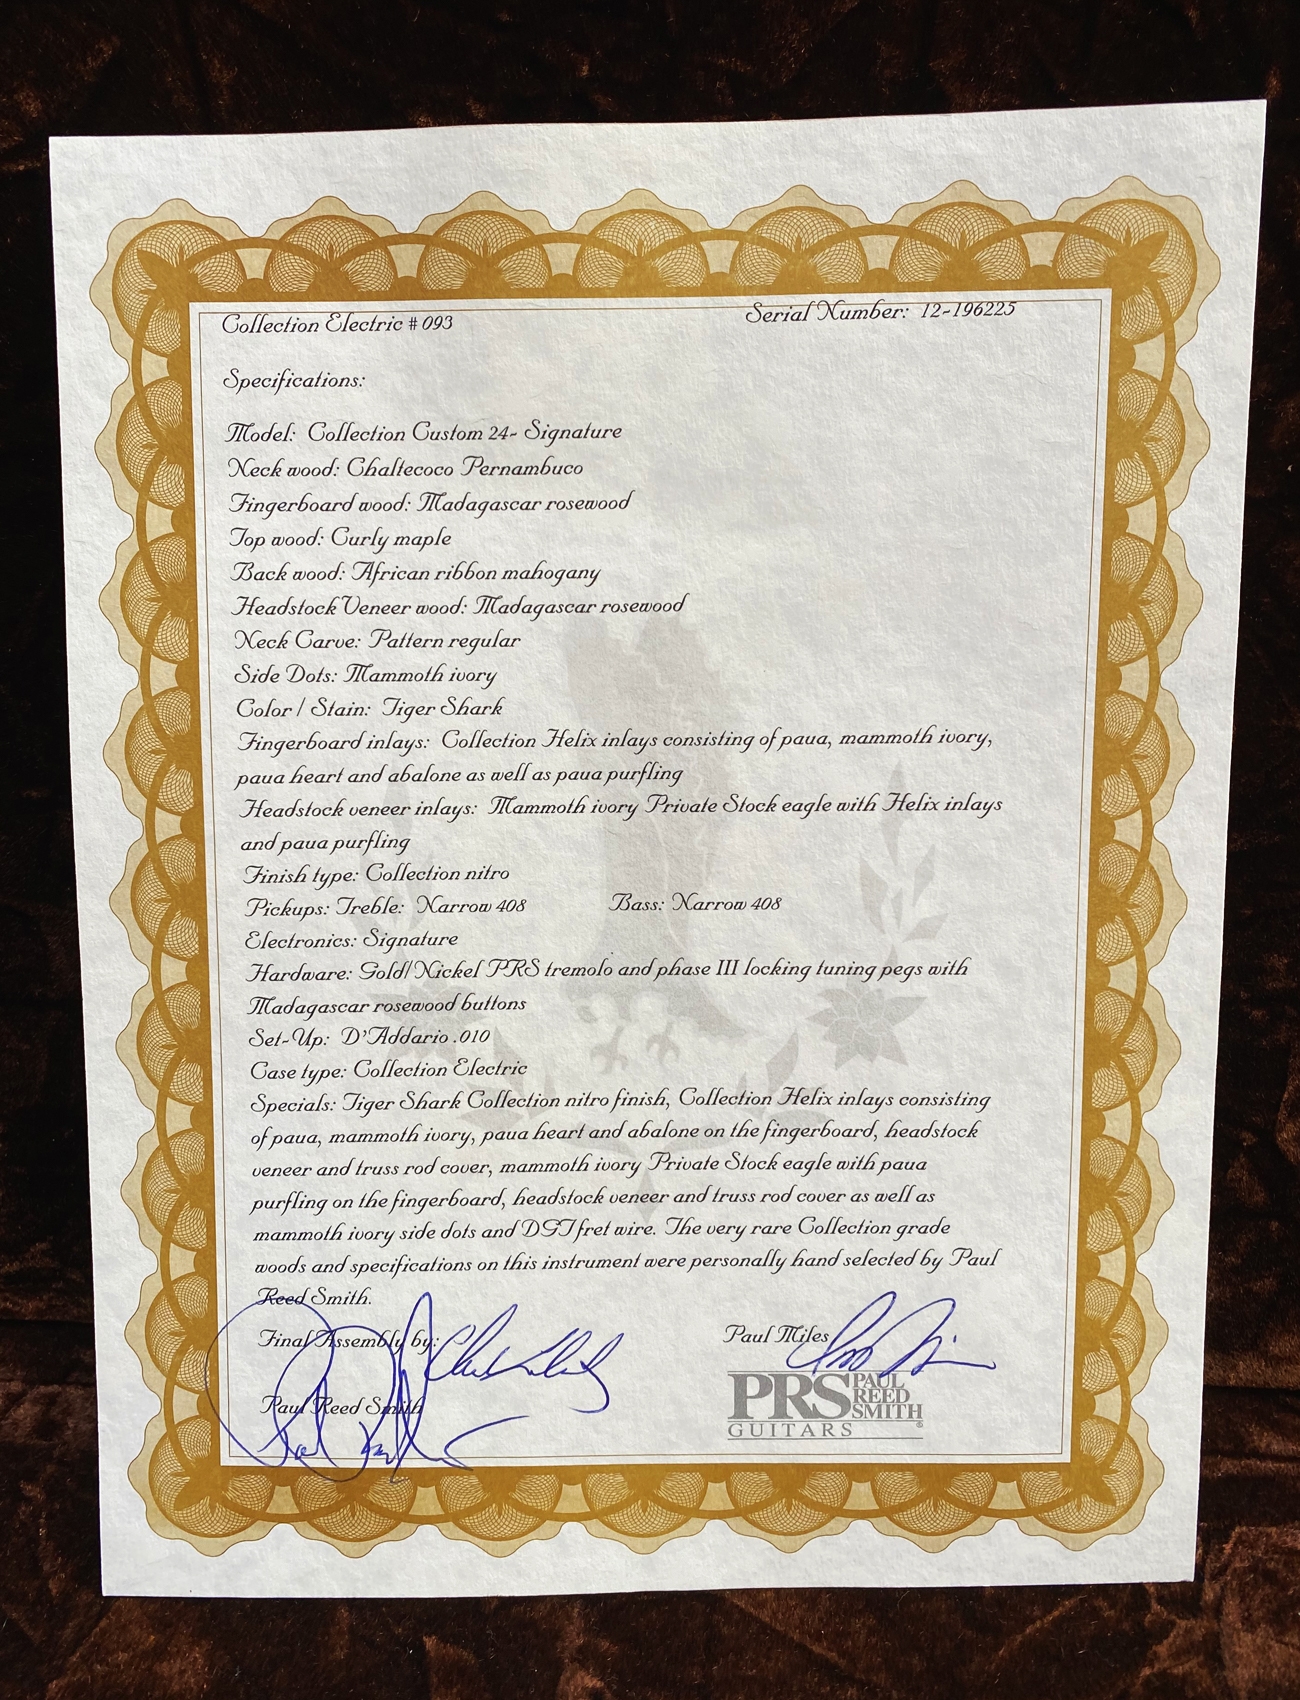 Collection Electric # 093
Serial Number: 12-196225
Specifications:
Model: Collection Custom 24- Signature
Neck wood: Chaltecoco Pernambuco
Fingerboard wood: Madagascar rosewood
Top wood: Curly maple
Back wood: African ribbon mahogany
Headstock Veneer wood: Madagascar rosewood
Neck Carve: Pattern regular
Side Dots: Mammoth ivory
Color / Stain: Tiger Shark
Fingerboard inlays: Collection Helix inlays consisting of paua, mammoth ivory,
paua heart and abalone as well as paua purfling
Headstock veneer inlays: Mammoth ivory Private Stock eagle with Helix inlays
and paua purfling
Finish type: Collection nitro
Pickups: Treble: Narrow 408 Bass: Narrow 408
Electronics: Signature
Hardware: Gold/Nickel PRS tremolo and phase III locking tuning pegs with
Madagascar rosewood buttons
Set-Up: D'Addario .010
Case type: Collection Electric
Specials: Tiger Shark Collection nitro finish, Collection Helix inlays consisting
of paua, mammoth ivory, paua heart and abalone on the fingerboard, headstock
veneer and truss rod cover, mammoth ivory Private Stock eagle with paua
purfling on the fingerboard, headstock veneer and truss rod cover as well as
mammoth ivory side dots and DGT fret wire. The very rare Collection grade
woods and specifications on this instrument were personally hand selected by Paul
Reed Smith.
Final Assembly by:
Paul Miles
Paul Reed Smith
PRS PAUL
REED
SMITH
GUITARS ®